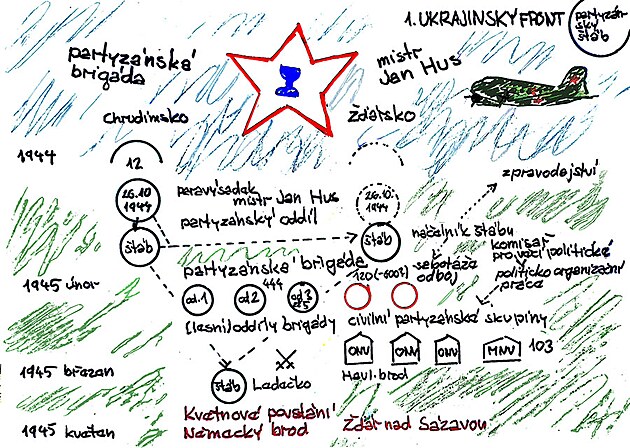 1. UKRAJINSKÝ FRONT
partyzán-
ský
štáb
partyzánská
brigáda
mistr
Jan Hus
Chrudimsko
Žďársko
1944
12
zpravodajství
26.10
1944
paravýsadek
mistr Jan Hus
partyzánský oddíl
26.10.
1944
štáb
štáb
náčelník štábu
komisař
pro věci politické
politicko organizační
práce
partyzánská brigáda
444
120 (-600?)
sabotáže
odboj
1945 únor
od.1
od2
od3
(lesní) oddíly brigády
civilní partyzánské skupiny
ONV
ONV
ONV
MNV
103
Havl. brod
1945 březan
štáb
Ladečko
1945 květan
Květnové povstání
Německý brod
Žďár nad Sázavou